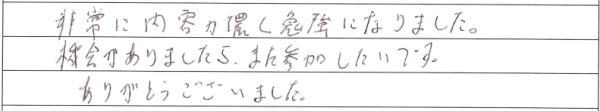 非常に内容が濃く勉強になりました。
機会がありましたら、また参加したいです。
ありがとうございました。